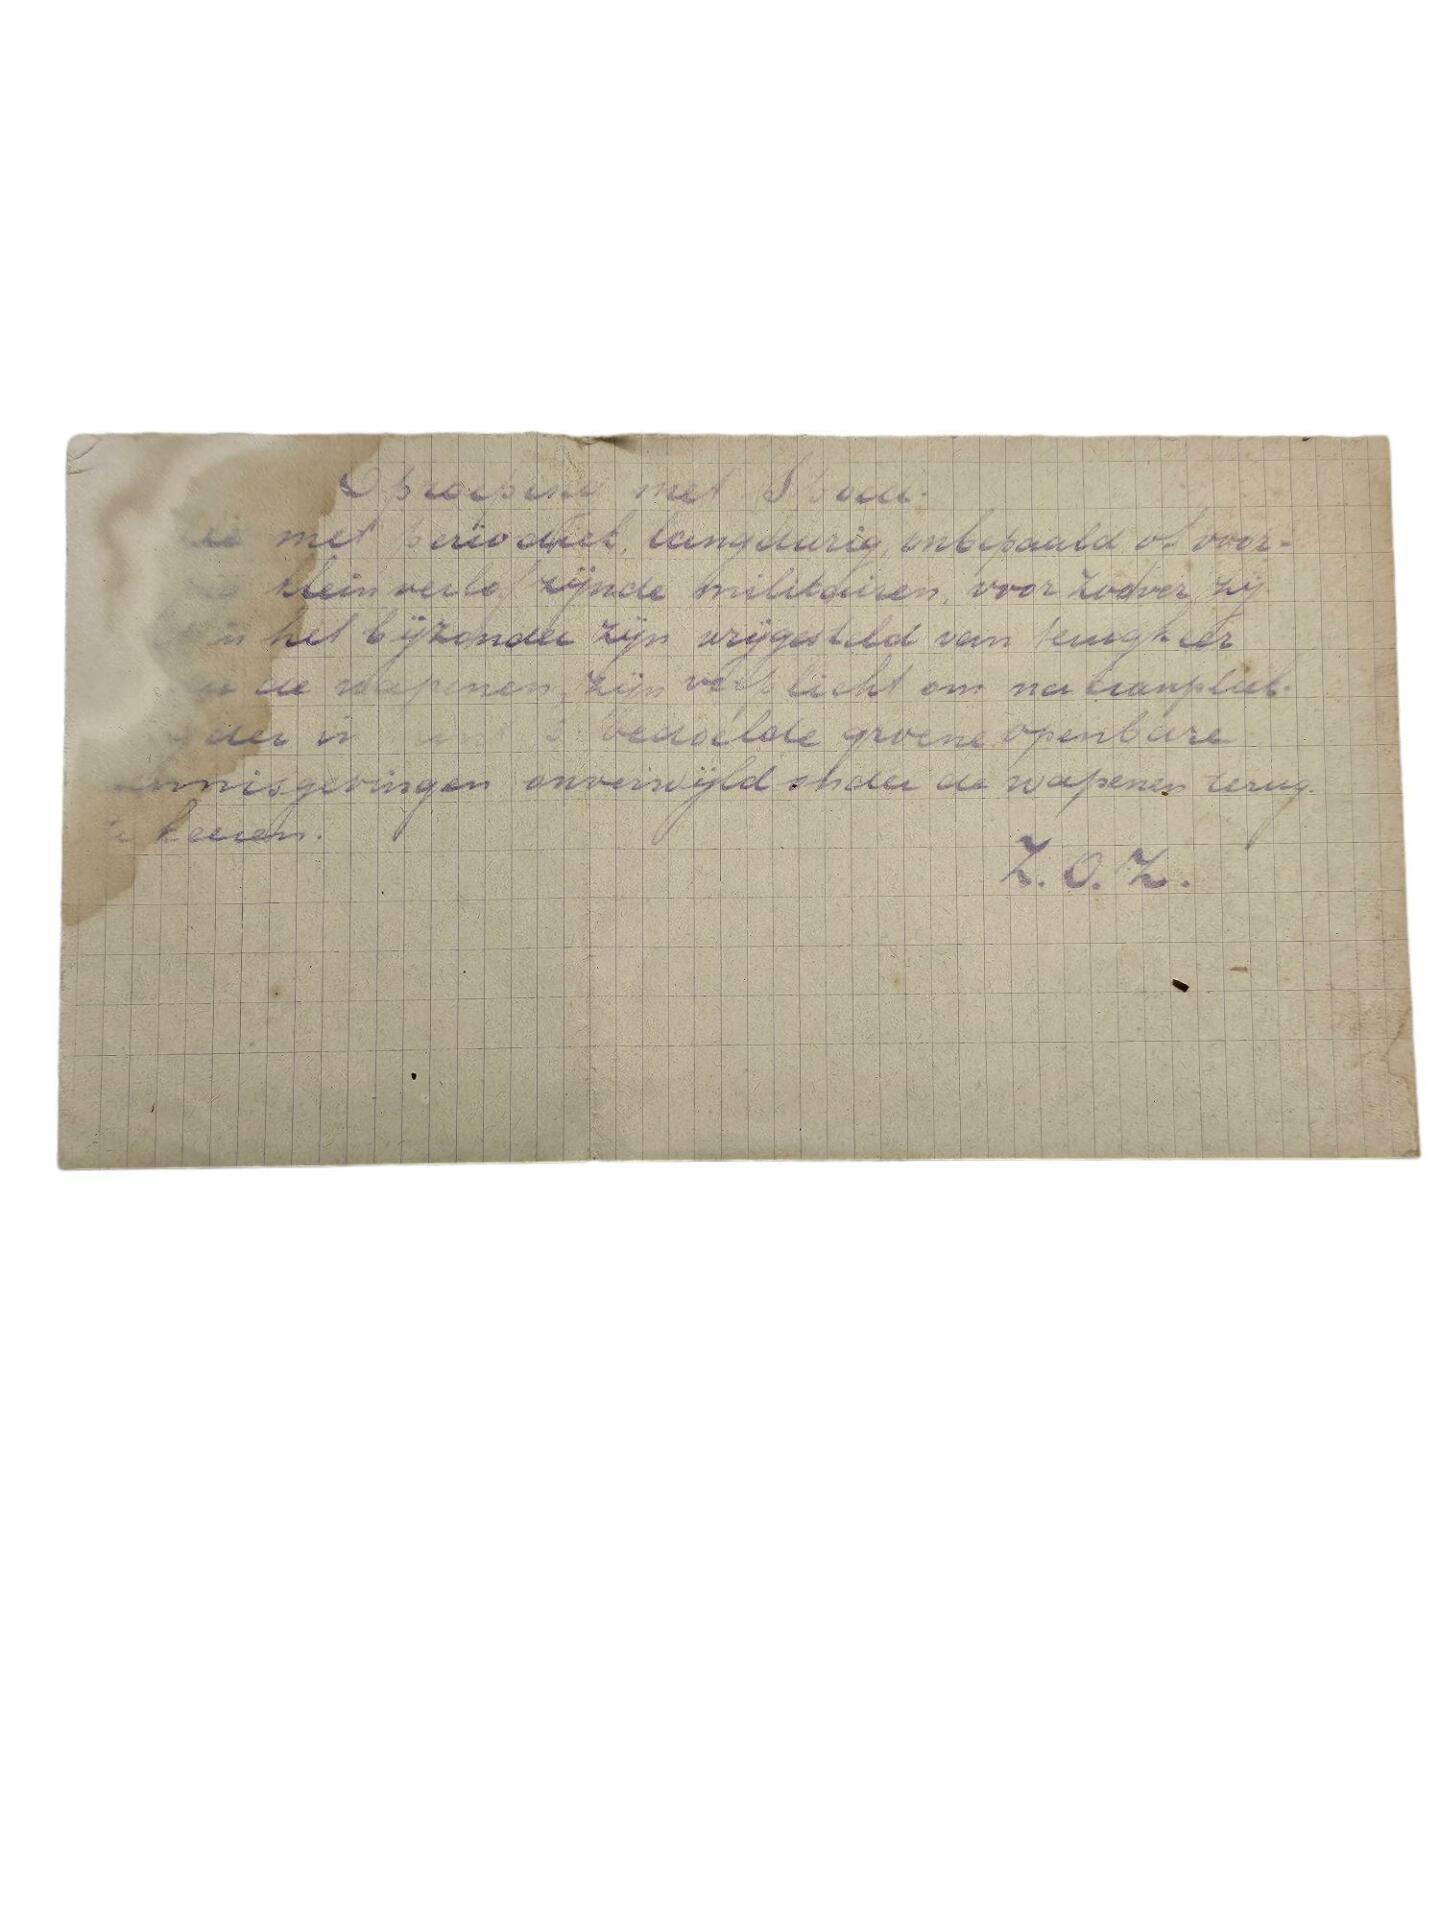 Oproeping met Spoed.
met periodiek, langdurig, onbepaald of voor-
klein verlof zijnde militairen, voor zoover zij
in het bijzonder zijn vrijgesteld van terugkeer
de wapenen, zijn verplicht om na aanplak-
der in bedoelde groene openbare
kennisgevingen onverwijld onder de wapenen terug
te keeren.
Z.O.Z.